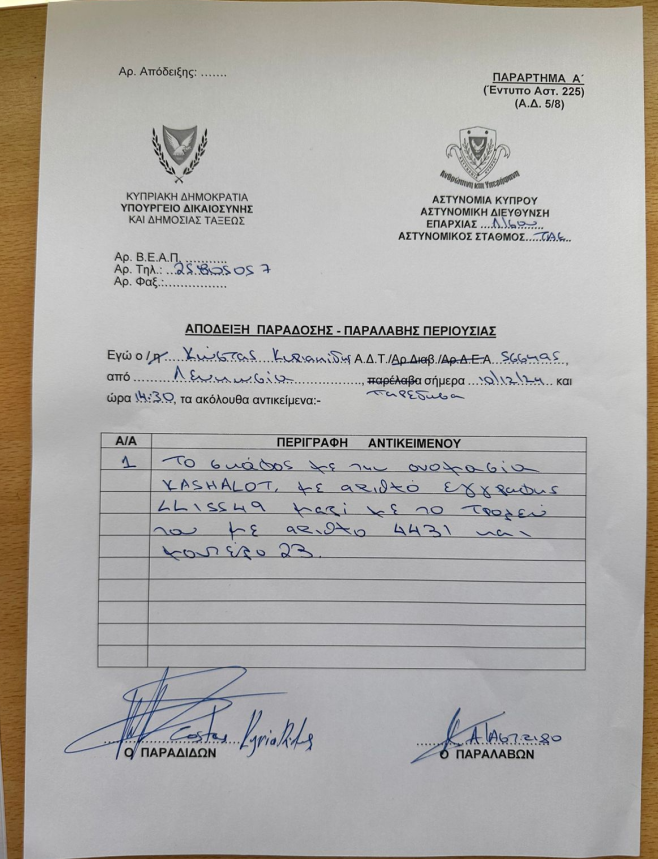 Αρ. Απόδειξης: .......
ΠΑΡΑΡΤΗΜΑ Α΄
(Έντυπο Αστ. 225)
(Α.Δ. 5/8)
ΚΥΠΡΙΑΚΗ ΔΗΜΟΚΡΑΤΙΑ
ΥΠΟΥΡΓΕΙΟ ΔΙΚΑΙΟΣΥΝΗΣ
ΚΑΙ ΔΗΜΟΣΙΑΣ ΤΑΞΕΩΣ
ΑΣΤΥΝΟΜΙΑ ΚΥΠΡΟΥ
ΑΣΤΥΝΟΜΙΚΗ ΔΙΕΥΘΥΝΣΗ
ΕΠΑΡΧΙΑΣ Λ/σου
ΑΣΤΥΝΟΜΙΚΟΣ ΣΤΑΘΜΟΣ ΤΑΕ
Αρ. Β.Ε.Α.Π. ..........
Αρ. Τηλ.: 25805057
Αρ. Φαξ.:................
ΑΠΟΔΕΙΞΗ ΠΑΡΑΔΟΣΗΣ - ΠΑΡΑΛΑΒΗΣ ΠΕΡΙΟΥΣΙΑΣ
Εγώ ο /η Κώστας Κυριακίδη Α.Δ.Τ./Αρ.Διαβ./Αρ.Δ.Ε.Α.
από Λευκωσία, παρέλαβα σήμερα 10/12/24 και
παρέδωσα
ώρα 14:30, τα ακόλουθα αντικείμενα:-
Α/Α ΠΕΡΙΓΡΑΦΗ ΑΝΤΙΚΕΙΜΕΝΟΥ
1 Το σκάφος με την ονομασία
KASHALOT, με αριθμό εγγραφής
LL15549 μαζί με το τρέιλερ
του με αριθμό 4431 και
κοντέινερ 23.
Costas Kyriakides
Ο ΠΑΡΑΔΙΔΩΝ
Ο ΠΑΡΑΛΑΒΩΝ